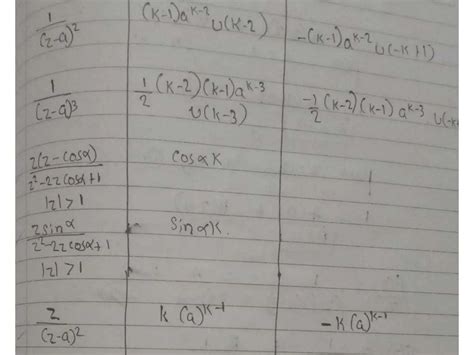 1/(z-a)² (k-1)a^(k-2) u(k-2) -(k-1)a^(k-2) u(-k+1)
1/(z-a)³ 1/2 (k-2)(k-1)a^(k-3) u(k-3) -1/2 (k-2)(k-1)a^(k-3) u(-k
z(z-cosα)/z²-2zcosα+1 cosαk
|z|>1
zsinα/z²-2zcosα+1 sinαk.
|z|>1
z/(z-a)² k(a)^(k-1) -k(a)^(k-1)